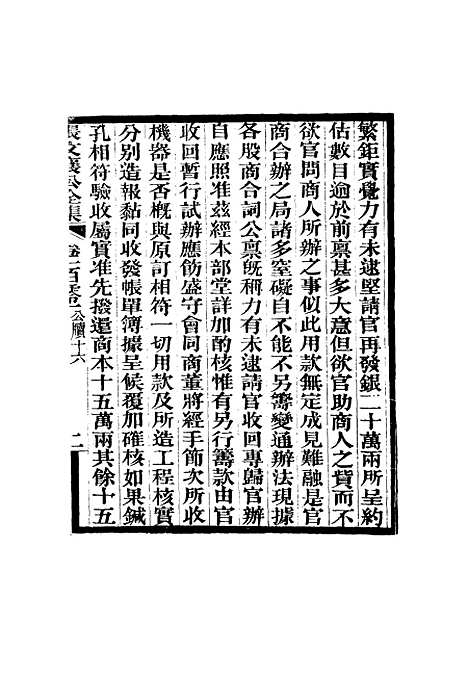 繁鉅實覺力有未逮堅請官再發銀二十萬兩所呈約
估數目逾於前稟甚多大意但欲官助商人之貲而不
欲官問商人所辦之事似此用款無定成見難融是官
商合辦之局諸多窒礙自不能不另籌變通辦法現據
各股商合詞公稟既稱力有未逮請官收回專歸官辦
自應照准茲經本部堂詳加酌核惟有另行籌款由官
收回暫行試辦應飭盛守會同商董將經手節次所收
機器是否概與原訂相符一切用款及所造工程核實
分別造報黏同收發帳單簿據呈候覆加確核如果鍼
孔相符驗收屬實准先撥還商本十五萬兩其餘十五
張文襄公全集 卷一百零一 公牘十六 二